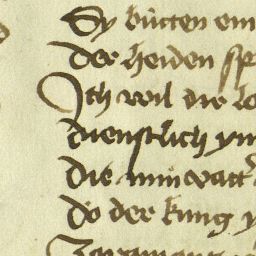 Sy butten em
der heiden sp
Ich wil dir lo
dienstlich yn
die min vatt
do der kung y